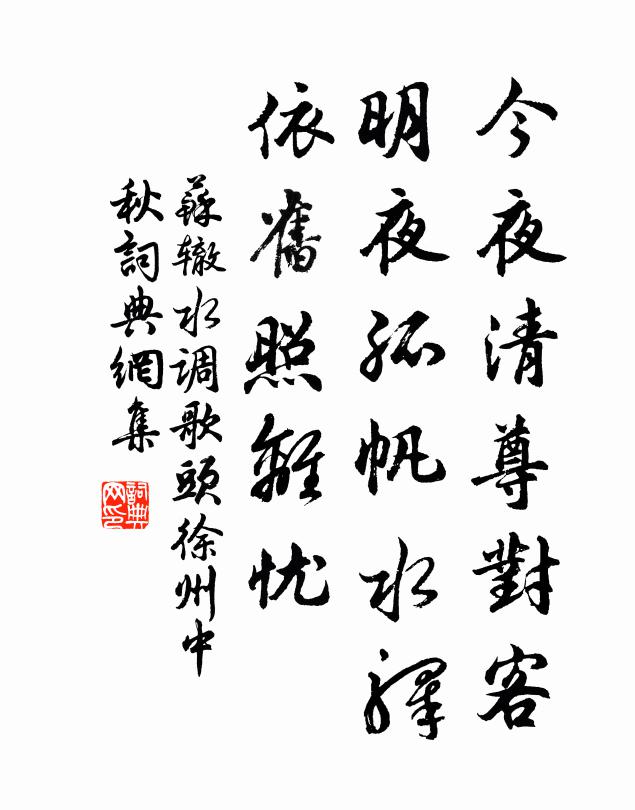 今夜清尊對客
明夜孤帆水驛
依舊照離忧
蘇辙水调歌頭徐州中
秋詞典網集
詞典网印